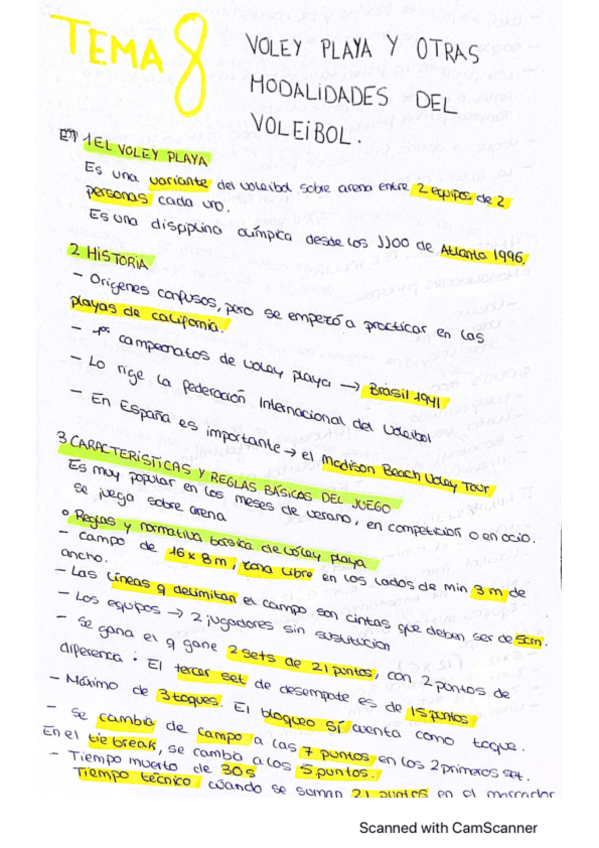 TEMA 8
VOLEY PLAYA Y OTRAS
MODALIDADES DEL
VOLEIBOL.
1 EL VOLEY PLAYA
Es una variante del voleibol sobre arena entre 2 equipos de 2
personas cada uno.
Es una disciplina olímpica desde los JJOO de Atlanta 1996.
2 HISTORIA
- Orígenes confusos, pero se empezó a practicar en las
playas de california.
- 1os campeonatos de voley playa → Brasil 1941
- Lo rige la federación Internacional del Voleibol
- En España es importante → el Madison Beach Voley Tour
3 CARACTERÍSTICAS Y REGLAS BÁSICAS DEL JUEGO
Es muy popular en los meses de verano, en competición o en ocio.
se juega sobre arena
o Reglas y normativa básica de vóley playa
- campo de 16 x 8 m, zona libre en los lados de min 3 m de
ancho.
- Las líneas q delimitan el campo son cintas que deben ser de 5cm.
- Los equipos → 2 jugadores sin sustitución
- Se gana el q gane 2 sets de 21 puntos, con 2 puntos de
diferencia : El tercer set de desempate es de 15 puntos
- Máximo de 3 toques. El bloqueo sí cuenta como toque.
- se cambia de campo a las 7 puntos en los 2 primeros set.
En el tie break, se cambia a los 5 puntos.
- Tiempo muerto de 30 s
Tiempo técnico cuando se suman 21 puntos en el marcador
Scanned with CamScanner